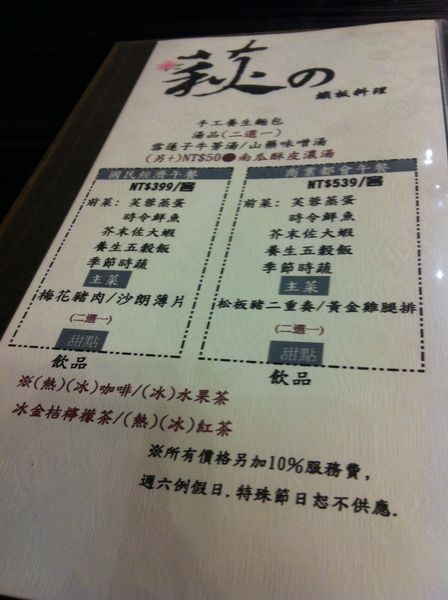 萩の
鐵板料理
手工養生麵包
湯品(二選一)
雪蓮子牛蒡湯/山藥味噌湯
(另+)NT$50●南瓜酥皮濃湯
國民經濟午餐
NT$399/客
前菜: 芙蓉蒸蛋
時令鮮魚
芥末佐大蝦
養生五穀飯
季節時蔬
主菜
梅花豬肉/沙朗薄片
(二選一)
甜點
飲品
商業都會午餐
NT$539/客
前菜: 芙蓉蒸蛋
時令鮮魚
芥末佐大蝦
養生五穀飯
季節時蔬
主菜
松板豬二重奏/黃金雞腿排
(二選一)
甜點
飲品
※(熱)(冰)咖啡/(冰)水果茶
冰金桔檸檬茶/(熱)(冰)紅茶
※所有價格另加10%服務費,
週六例假日.特殊節日恕不供應.